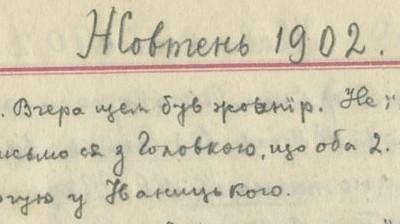 Жовтень 1902.
. Вчера щем був жовнїр. Не
исьмо ся з Головкою, що оба 2.
ю у Іваницького.